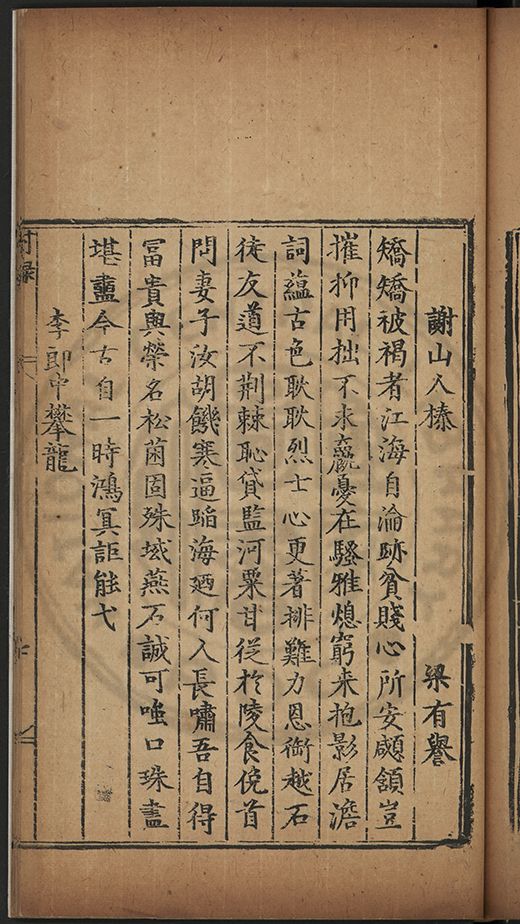 謝山人榛 梁有譽
矯矯被褐者江海自淪跡貧賤心所安顑頷豈
摧抑用拙不求贏憂在騷雅熄窮来抱影居澹
詞蘊古色耿耿烈士心更著排難力恩銜越石
徒友道不荆棘恥貸監河粟甘從於陵食俛首
問妻子汝胡饑寒逼蹈海廼何人長嘯吾自得
冨貴與榮名松菌固殊域燕石誠可嗤口珠盡
堪盡今古自一時鴻冥詎能弋
李郎中攀龍
附錄